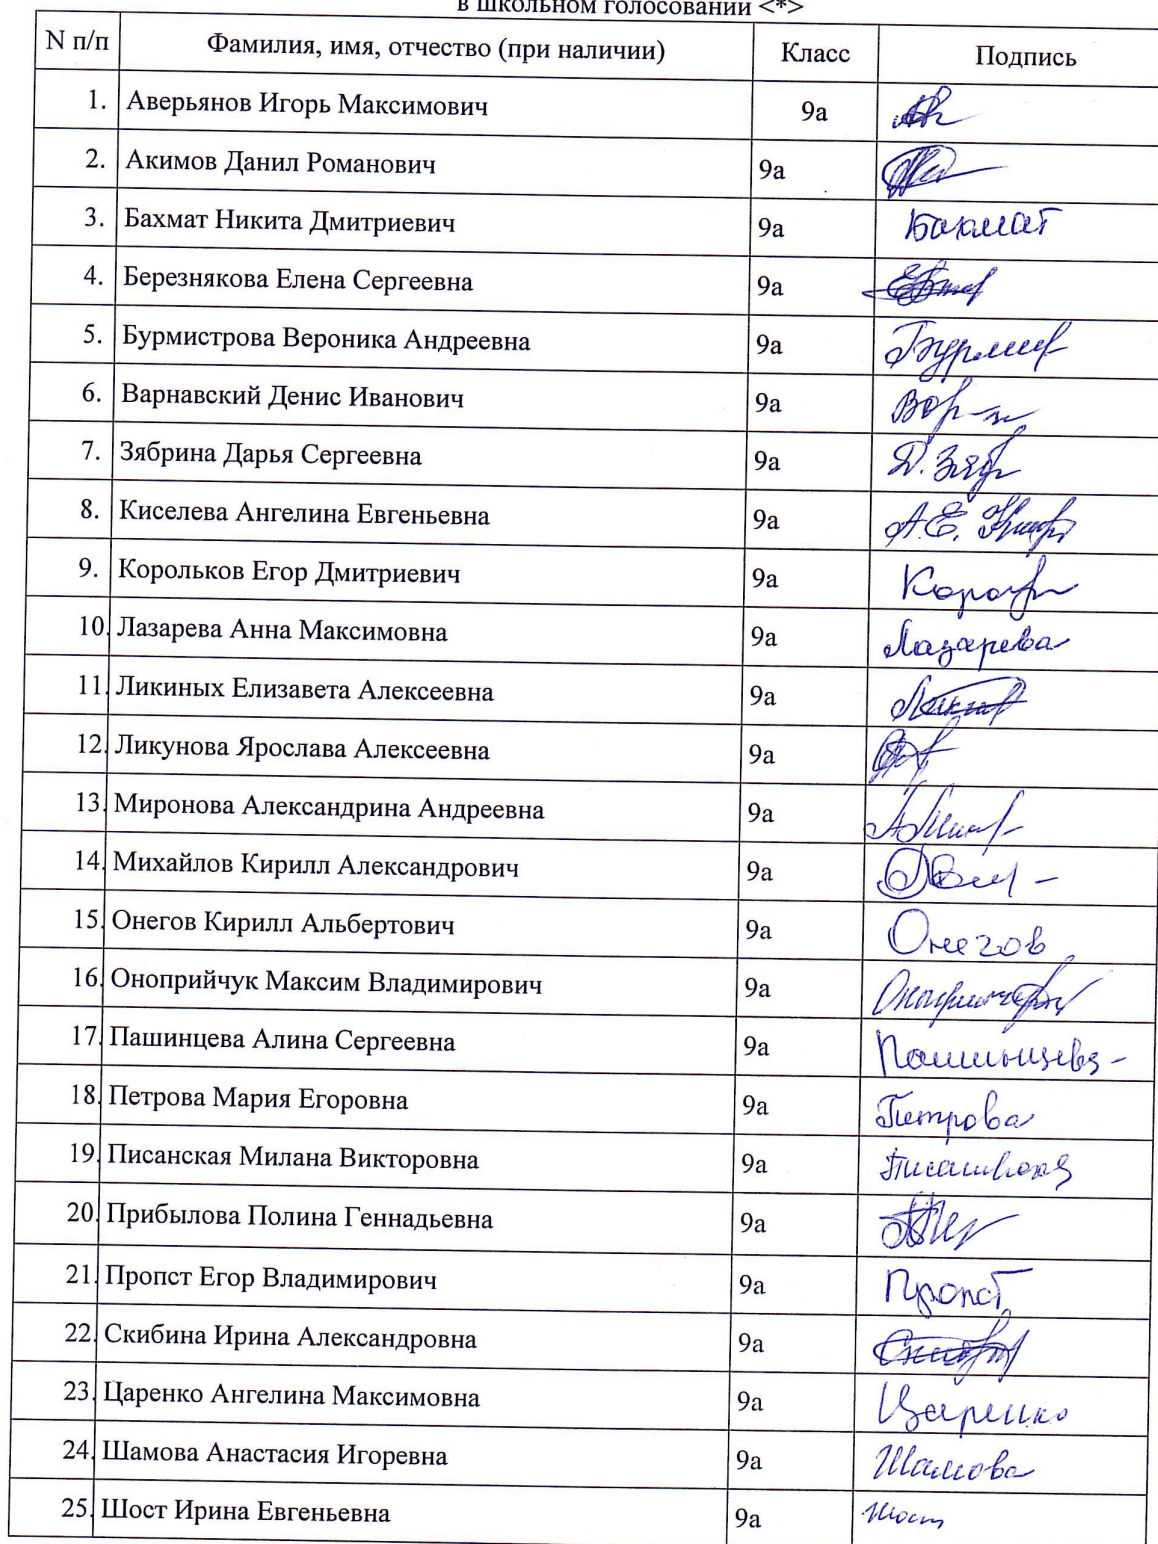 в школьном голосовании <*>
N п/п Фамилия, имя, отчество (при наличии) Класс Подпись
1. Аверьянов Игорь Максимович 9а
2. Акимов Данил Романович 9а
3. Бахмат Никита Дмитриевич 9а Бахмат
4. Березнякова Елена Сергеевна 9а
5. Бурмистрова Вероника Андреевна 9а
6. Варнавский Денис Иванович 9а
7. Зябрина Дарья Сергеевна 9а Д. Зяб
8. Киселева Ангелина Евгеньевна 9а А.Е.
9. Корольков Егор Дмитриевич 9а
10. Лазарева Анна Максимовна 9а Лазарева
11. Ликиных Елизавета Алексеевна 9а
12. Ликунова Ярослава Алексеевна 9а
13. Миронова Александрина Андреевна 9а
14. Михайлов Кирилл Александрович 9а
15. Онегов Кирилл Альбертович 9а Онегов
16. Оноприйчук Максим Владимирович 9а
17. Пашинцева Алина Сергеевна 9а
18. Петрова Мария Егоровна 9а Петрова
19. Писанская Милана Викторовна 9а Писанская
20. Прибылова Полина Геннадьевна 9а
21. Пропст Егор Владимирович 9а Пропст
22. Скибина Ирина Александровна 9а
23. Царенко Ангелина Максимовна 9а Царенко
24. Шамова Анастасия Игоревна 9а Шамова
25. Шост Ирина Евгеньевна 9а Шост